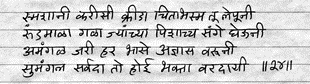 स्मशानीं करीसी क्रीडा चिताभस्म तू लेपूनी
रुंडमाळा गळा ज्यांच्या पिशाच्च संगे घेऊनी
अमंगळ जरी हर भासे अज्ञास वरूनी
सुमंगल सर्वदा तो होई भक्ता वरदायी ॥२४॥